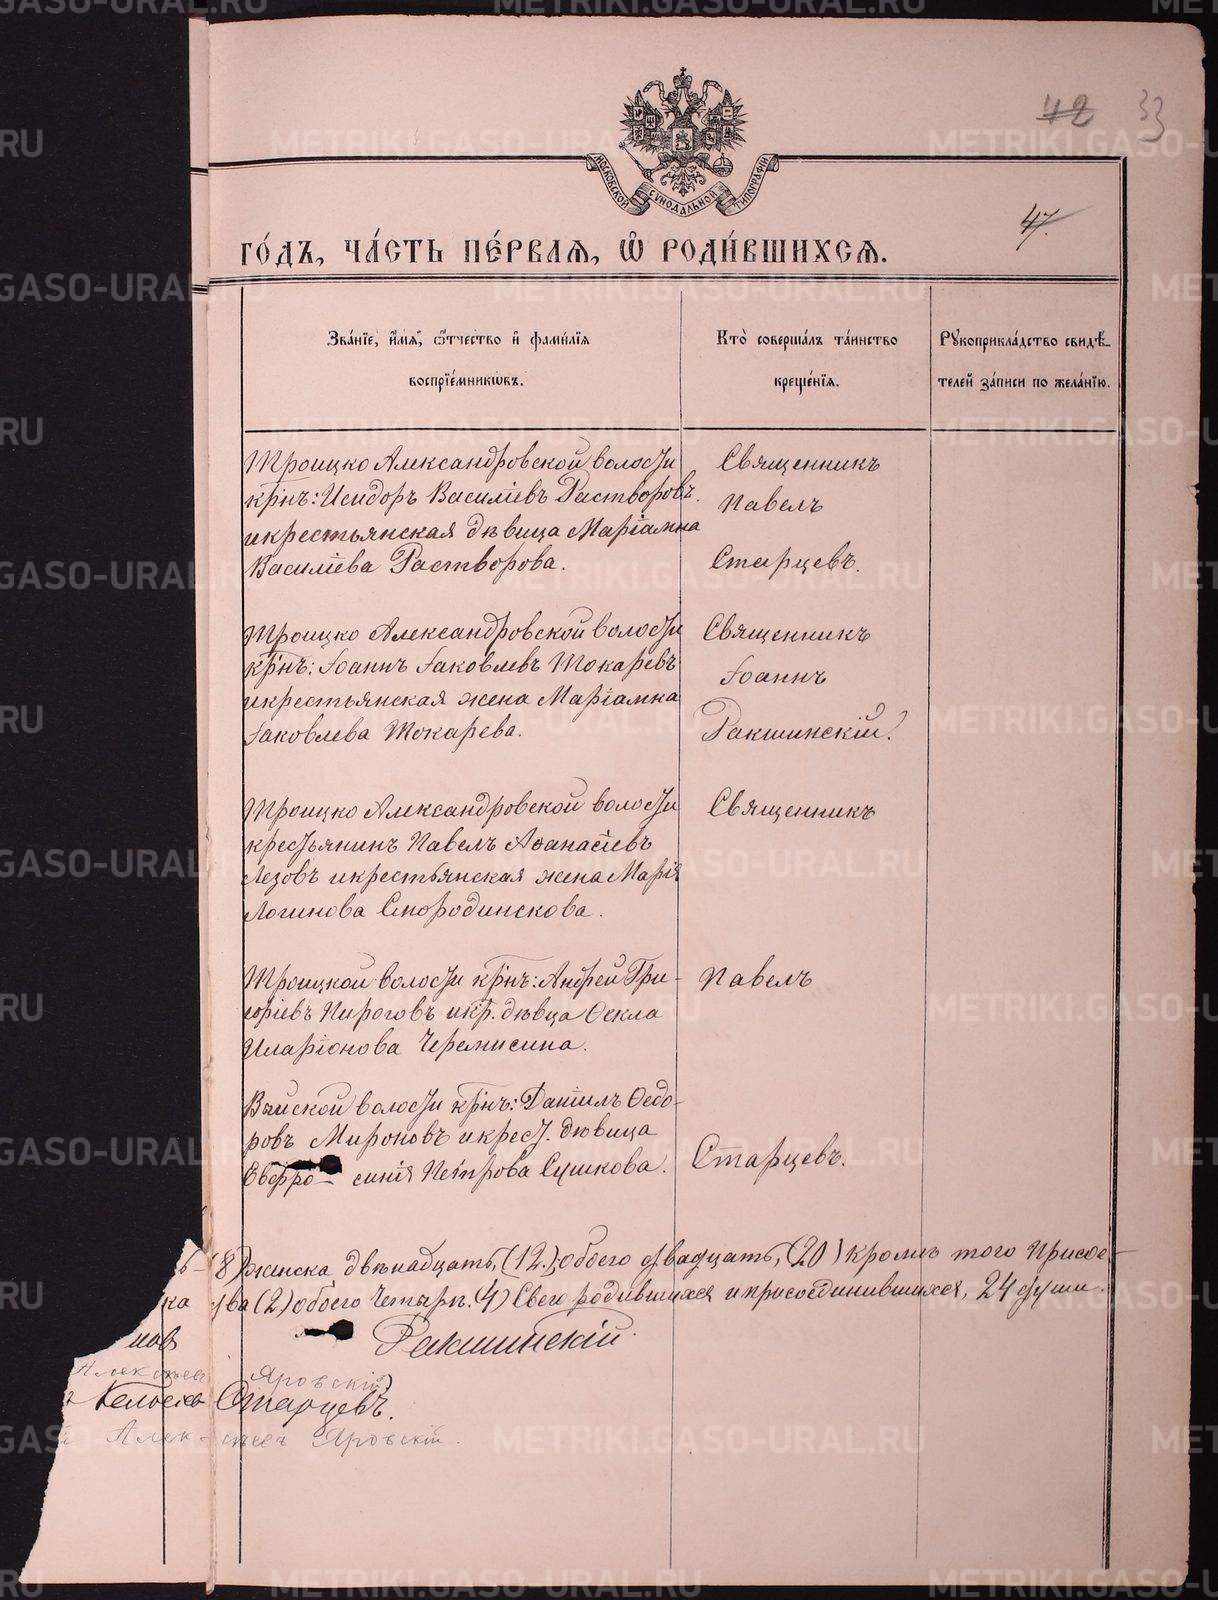 42 33
МОСКОВСКОЙ СѴНОДАЛЬНОЙ ТИПОГРАФІИ
47.
ГО́ДЪ, ЧА́СТЬ ПЕ́РВАЯ, Ѽ РОДИ́ВШИХСЯ.
Зва́нїе, и҆́мя, ѻ҆́тчество и҆ фами́лїя
воспрїе́мникѡвъ.
Кто̀ соверша́лъ та́инство
креще́нїя.
Рꙋкоприкла́дство свидѣ́-
телей за́писи по жела́нїю.
Троицко Александровской волости
крнъ: Исидоръ Василіевъ Растворовъ
и крестьянская дѣвица Маріамна
Василіева Растворова.
Священникъ
Павелъ
Старцевъ.
Троицко Александровской волости
крнъ: Іоаннъ Іаковлевъ Токаревъ
и крестьянская жена Маріамна
Іаковлева Токарева.
Священникъ
Іоаннъ
Ракшинскій.
Троицко Александровской волости
крестьянинъ Павелъ Аѳанасіевъ
Лезовъ и крестьянская жена Марія
Логинова Смородинскова.
Священникъ
Троицкой волости крнъ: Андрей Гри-
горіевъ Пироговъ и кр. дѣвца Ѳекла
Иларіонова Черемисина.
Павелъ
Выйской волости крнъ: Даніилъ Ѳедо-
ровъ Мироновъ и крест. дѣвица
Евфро- синія Петрова Сушкова.
Старцевъ.
ъ-(8) женска двѣнадцать, (12), обоего двадцать, (20) кромѣ того Присое-
ка два (2) обоего Четыре. (4) Всего родившихся и присоединившихся, 24 души.
Ракшинскій.
Алексѣевъ Яровскій
Старцевъ.
Алек-сѣевъ Яровскій.
METRIKI.GASO-URAL.RU